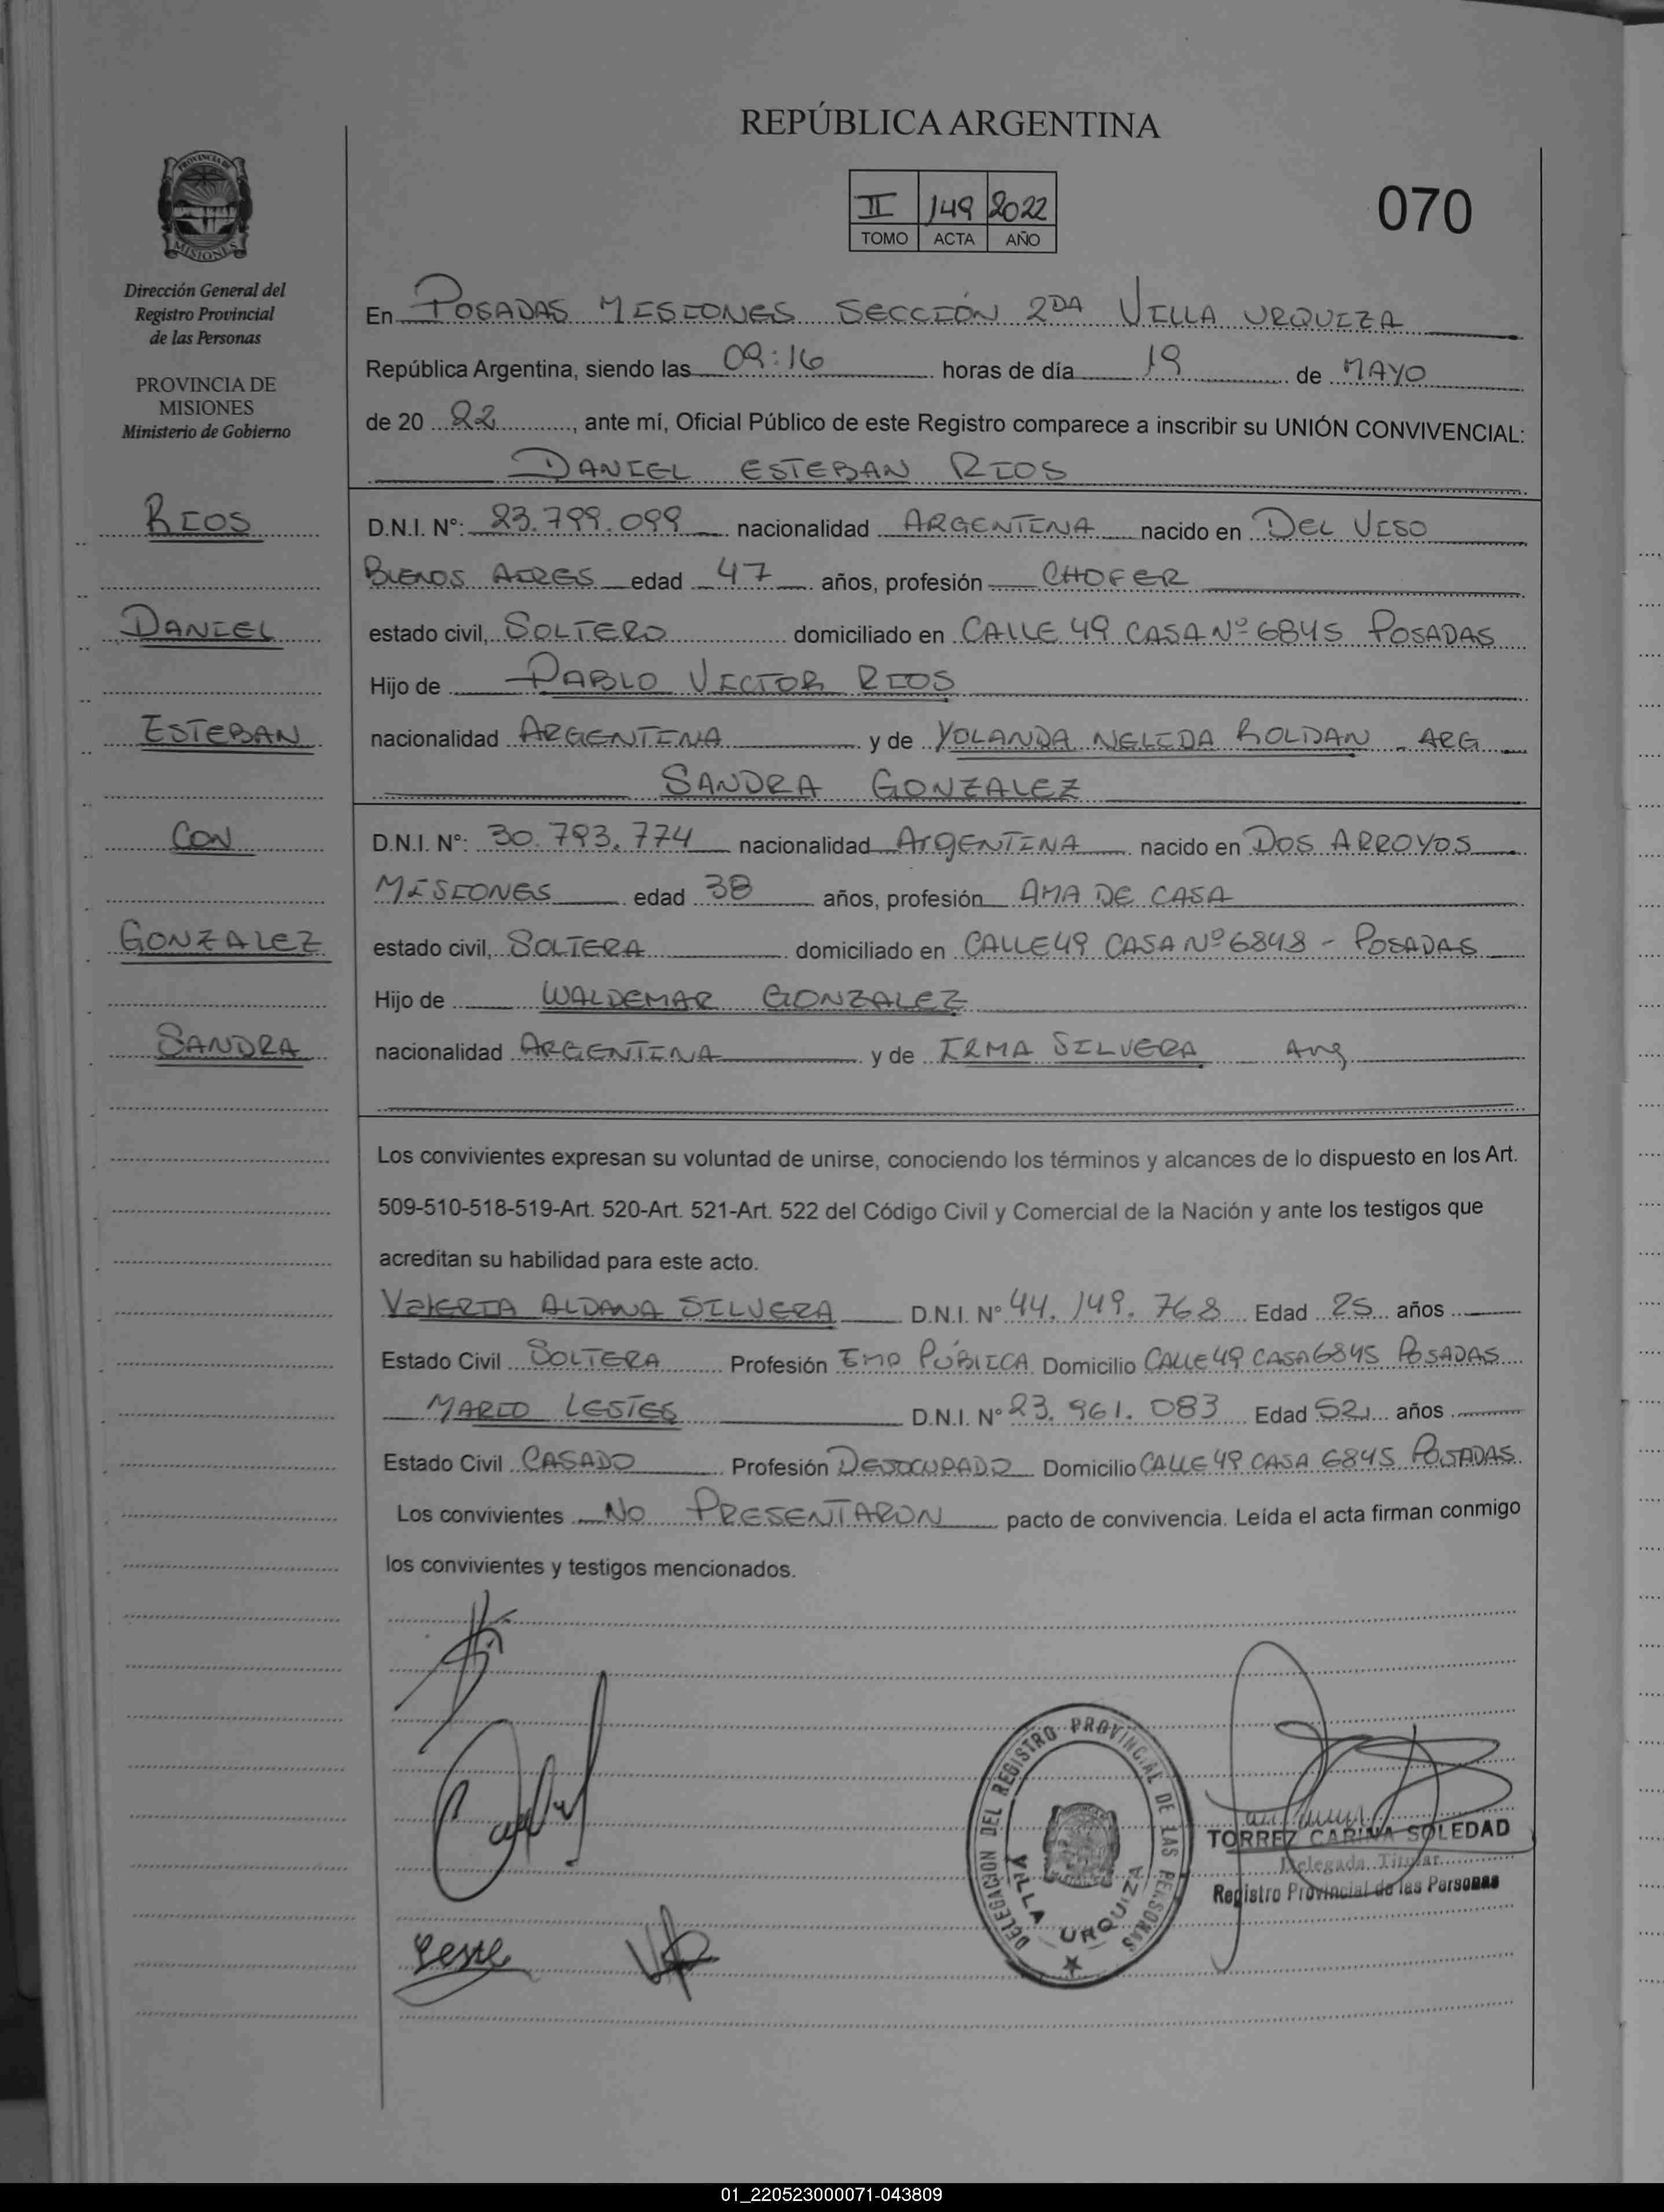 REPÚBLICA ARGENTINA
II 149 2022
TOMO ACTA AÑO
070
PROVINCIA DE
MISIONES
Dirección General del
Registro Provincial
de las Personas
PROVINCIA DE
MISIONES
Ministerio de Gobierno
RIOS
DANIEL
ESTEBAN
CON
GONZALEZ
SANDRA
En POSADAS MISIONES SECCIÓN 2DA VILLA URQUIZA
República Argentina, siendo las 09:16 horas de día 19 de MAYO
de 20 22, ante mí, Oficial Público de este Registro comparece a inscribir su UNIÓN CONVIVENCIAL:
DANIEL ESTEBAN RIOS
D.N.I. N°: 23.799.099 nacionalidad ARGENTINA nacido en DEL VISO
BUENOS AIRES edad 47 años, profesión CHOFER
estado civil, SOLTERO domiciliado en CALLE 49 CASA Nº 6845 POSADAS
Hijo de PABLO VICTOR RIOS
nacionalidad ARGENTINA y de YOLANDA NELIDA ROLDAN - ARG
SANDRA GONZALEZ
D.N.I. N°: 30.793.774 nacionalidad ArgENTINA nacido en DOS ARROYOS
MISIONES edad 38 años, profesión AMA DE CASA
estado civil, SOLTERA domiciliado en CALLE 49 CASA Nº 6848 - POSADAS
Hijo de WALDEMAR GONZALEZ
nacionalidad ARGENTINA y de IRMA SILVERA Arg
Los convivientes expresan su voluntad de unirse, conociendo los términos y alcances de lo dispuesto en los Art.
509-510-518-519-Art. 520-Art. 521-Art. 522 del Código Civil y Comercial de la Nación y ante los testigos que
acreditan su habilidad para este acto.
VALERIA ALDANA SILVERA D.N.I. N° 44.149.768 Edad 25 años
Estado Civil SOLTERA Profesión EMP PÚBLICA Domicilio CALLE 49 CASA 6845 POSADAS
MARIO LESTES D.N.I. N° 23.961.083 Edad 52 años
Estado Civil CASADO Profesión DESOCUPADO Domicilio CALLE 49 CASA 6845 POSADAS
Los convivientes NO PRESENTARON pacto de convivencia. Leída el acta firman conmigo
los convivientes y testigos mencionados.
DELEGACION DEL REGISTRO PROVINCIAL DE LAS PERSONAS
VILLA URQUIZA
TORREZ CARINA SOLEDAD
Delegada Titular
Registro Provincial de las Personas
01_220523000071-043809